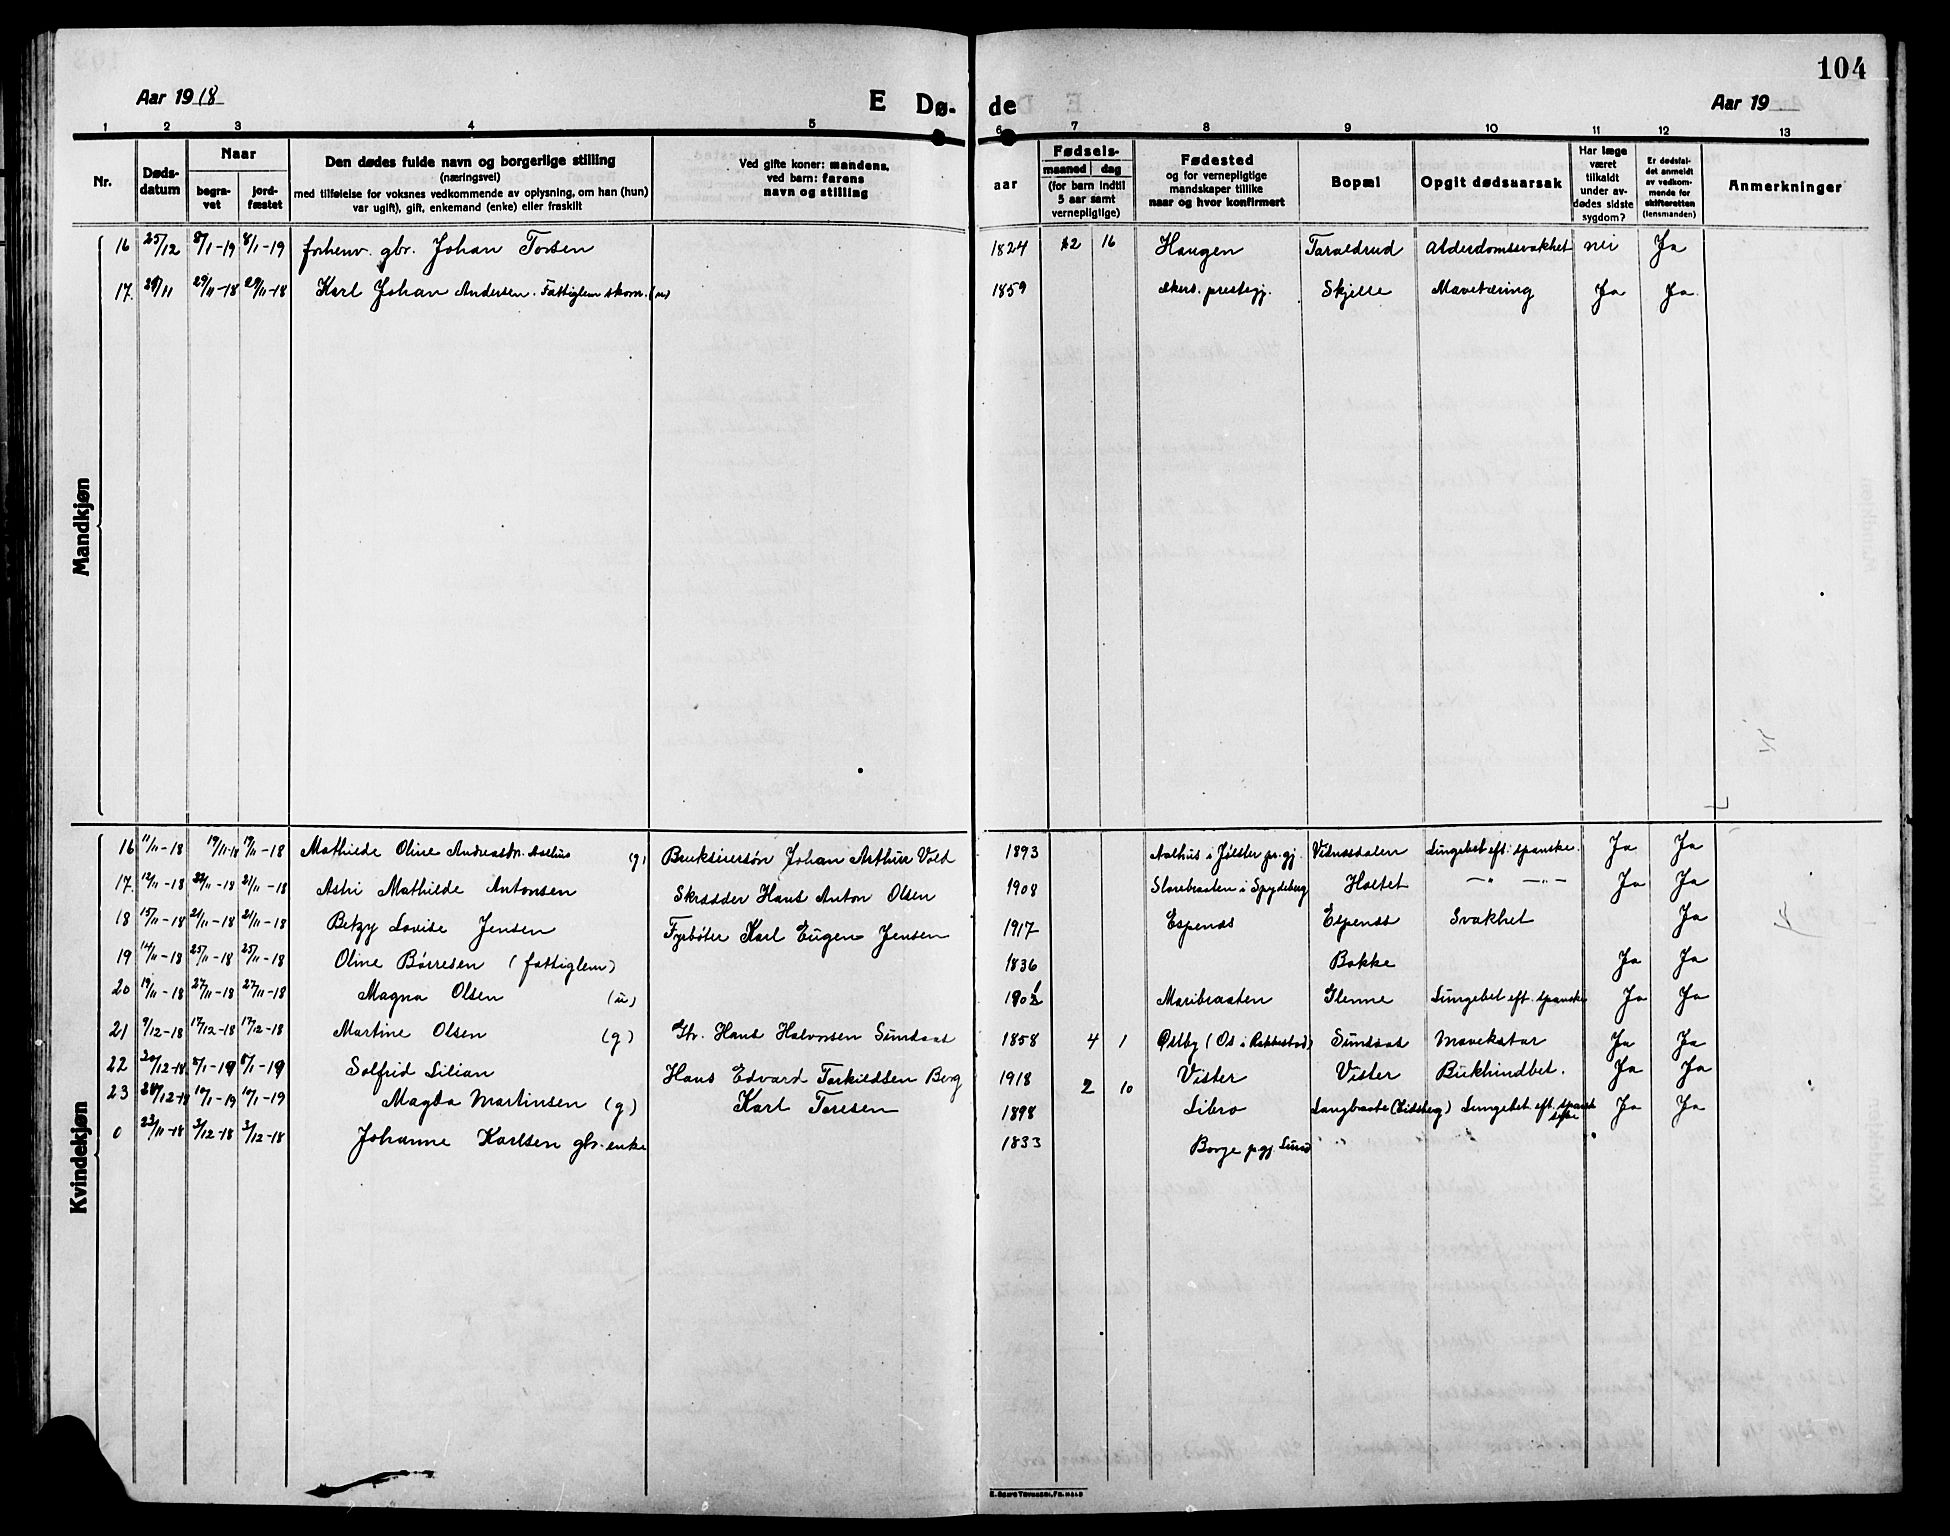 104
Aar 1918 E Dø- de Aar 19
1 2 3 4 5 6 7 8 9 10 11 12 13
Nr. Døds-datum Naar begra-vet jord-fæstet Den dødes fulde navn og borgerlige stilling (næringsvei) med tilføielse for voksnes vedkommende av oplysning, om han (hun) var ugift), gift, enkemand (enke) eller fraskilt Ved gifte koner: mandens, ved barn: farens navn og stilling aar Fødsels- maaned dag (for barn indtil 5 aar samt vernepligtige) Fødested og for vernepligtige mandskaper tillike naar og hvor konfirmert Bopæl Opgit dødsaarsak Har læge været tilkaldt under av-dødes sidste sygdom? Er dødsfal-det anmeldt av vedkom-mende for skifteretten (lensmanden) Anmerkninger
Mandkjøn
16 25/12 8/1-19 8/1-19 forhenv. gbr. Johan Torsen 1824 12 16 Haugen Taraldrud Alderdomssvakhet nei Ja
17. 29/11-18 29/11-18 Karl Johan Andersen. Fattiglem skom. (u) 1859 Akers. prestegj. Skjelle Mavetæring Ja Ja.
Kvindekjøn
16 11/11-18 19/11-18 19/11-18 Mathilde Oline Andreasdr. Aalhus (g) Brukseiersøn Johan Arthur Vold 1893 Aalhus i Jølster pr.gj. Vidnesdalen Lungebet. eft. spanske. Ja Ja
17. 12/11-18 22/11-18 21/11-18 Astri Mathilde Antonsen Skrædder Hans Anton Olsen 1908 i Spydeberg Holtet -"- -"- Ja Ja
18 15/11-18 21/11-18 21/11-18 Betzy Lovise Jensen Fyrbøter Karl Eugen Jensen 1917 Espenes Espenes Svakhet Ja
19 14/11-18 25/11-18 25/11-18 Oline Børresen (fattiglem) 1836 Bakke Ja Ja
20 19/11-18 27/11-18 27/11-18 Magna Olsen (u) 1901 Maribraaten Glenne Lungebet. eft. spanske Ja Ja
21 9/12-18 17/12-18 17/12-18 Martine Olsen (g) Gbr. Hans Halvorsen Sundaas 1858 4 1 Østby (Os i Rakkestad) Sundaas Mavekatar Ja Ja
22 20/12-18 8/1-19 8/1-19 Solfrid Lilian Hans Edvard Torkildsen Berg 1918 2 10 Vister Vister Bukhindbet. Ja Ja
23 28/12-18 10/1-19 10/1-19 Magda Martinsen (g) Karl Toresen 1898 Libro (Eidsberg) Lungebet. eft. spanske syke Ja Ja
0 23/11-18 3/12-18 3/12-18 Johanne Karlsen gbr. enke 1833 Borge pgj.